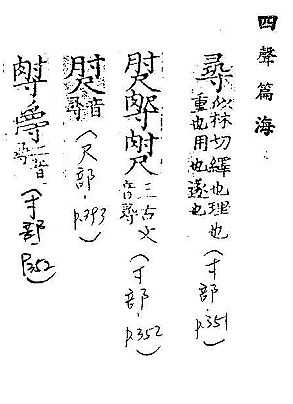 四聲篇海
尋 似林切繹也理也重也用也遂也(寸部,p.351)
三古文音尋(寸部,p.352)
音尋(尺部,p.393)
二音尋(寸部 p.352)